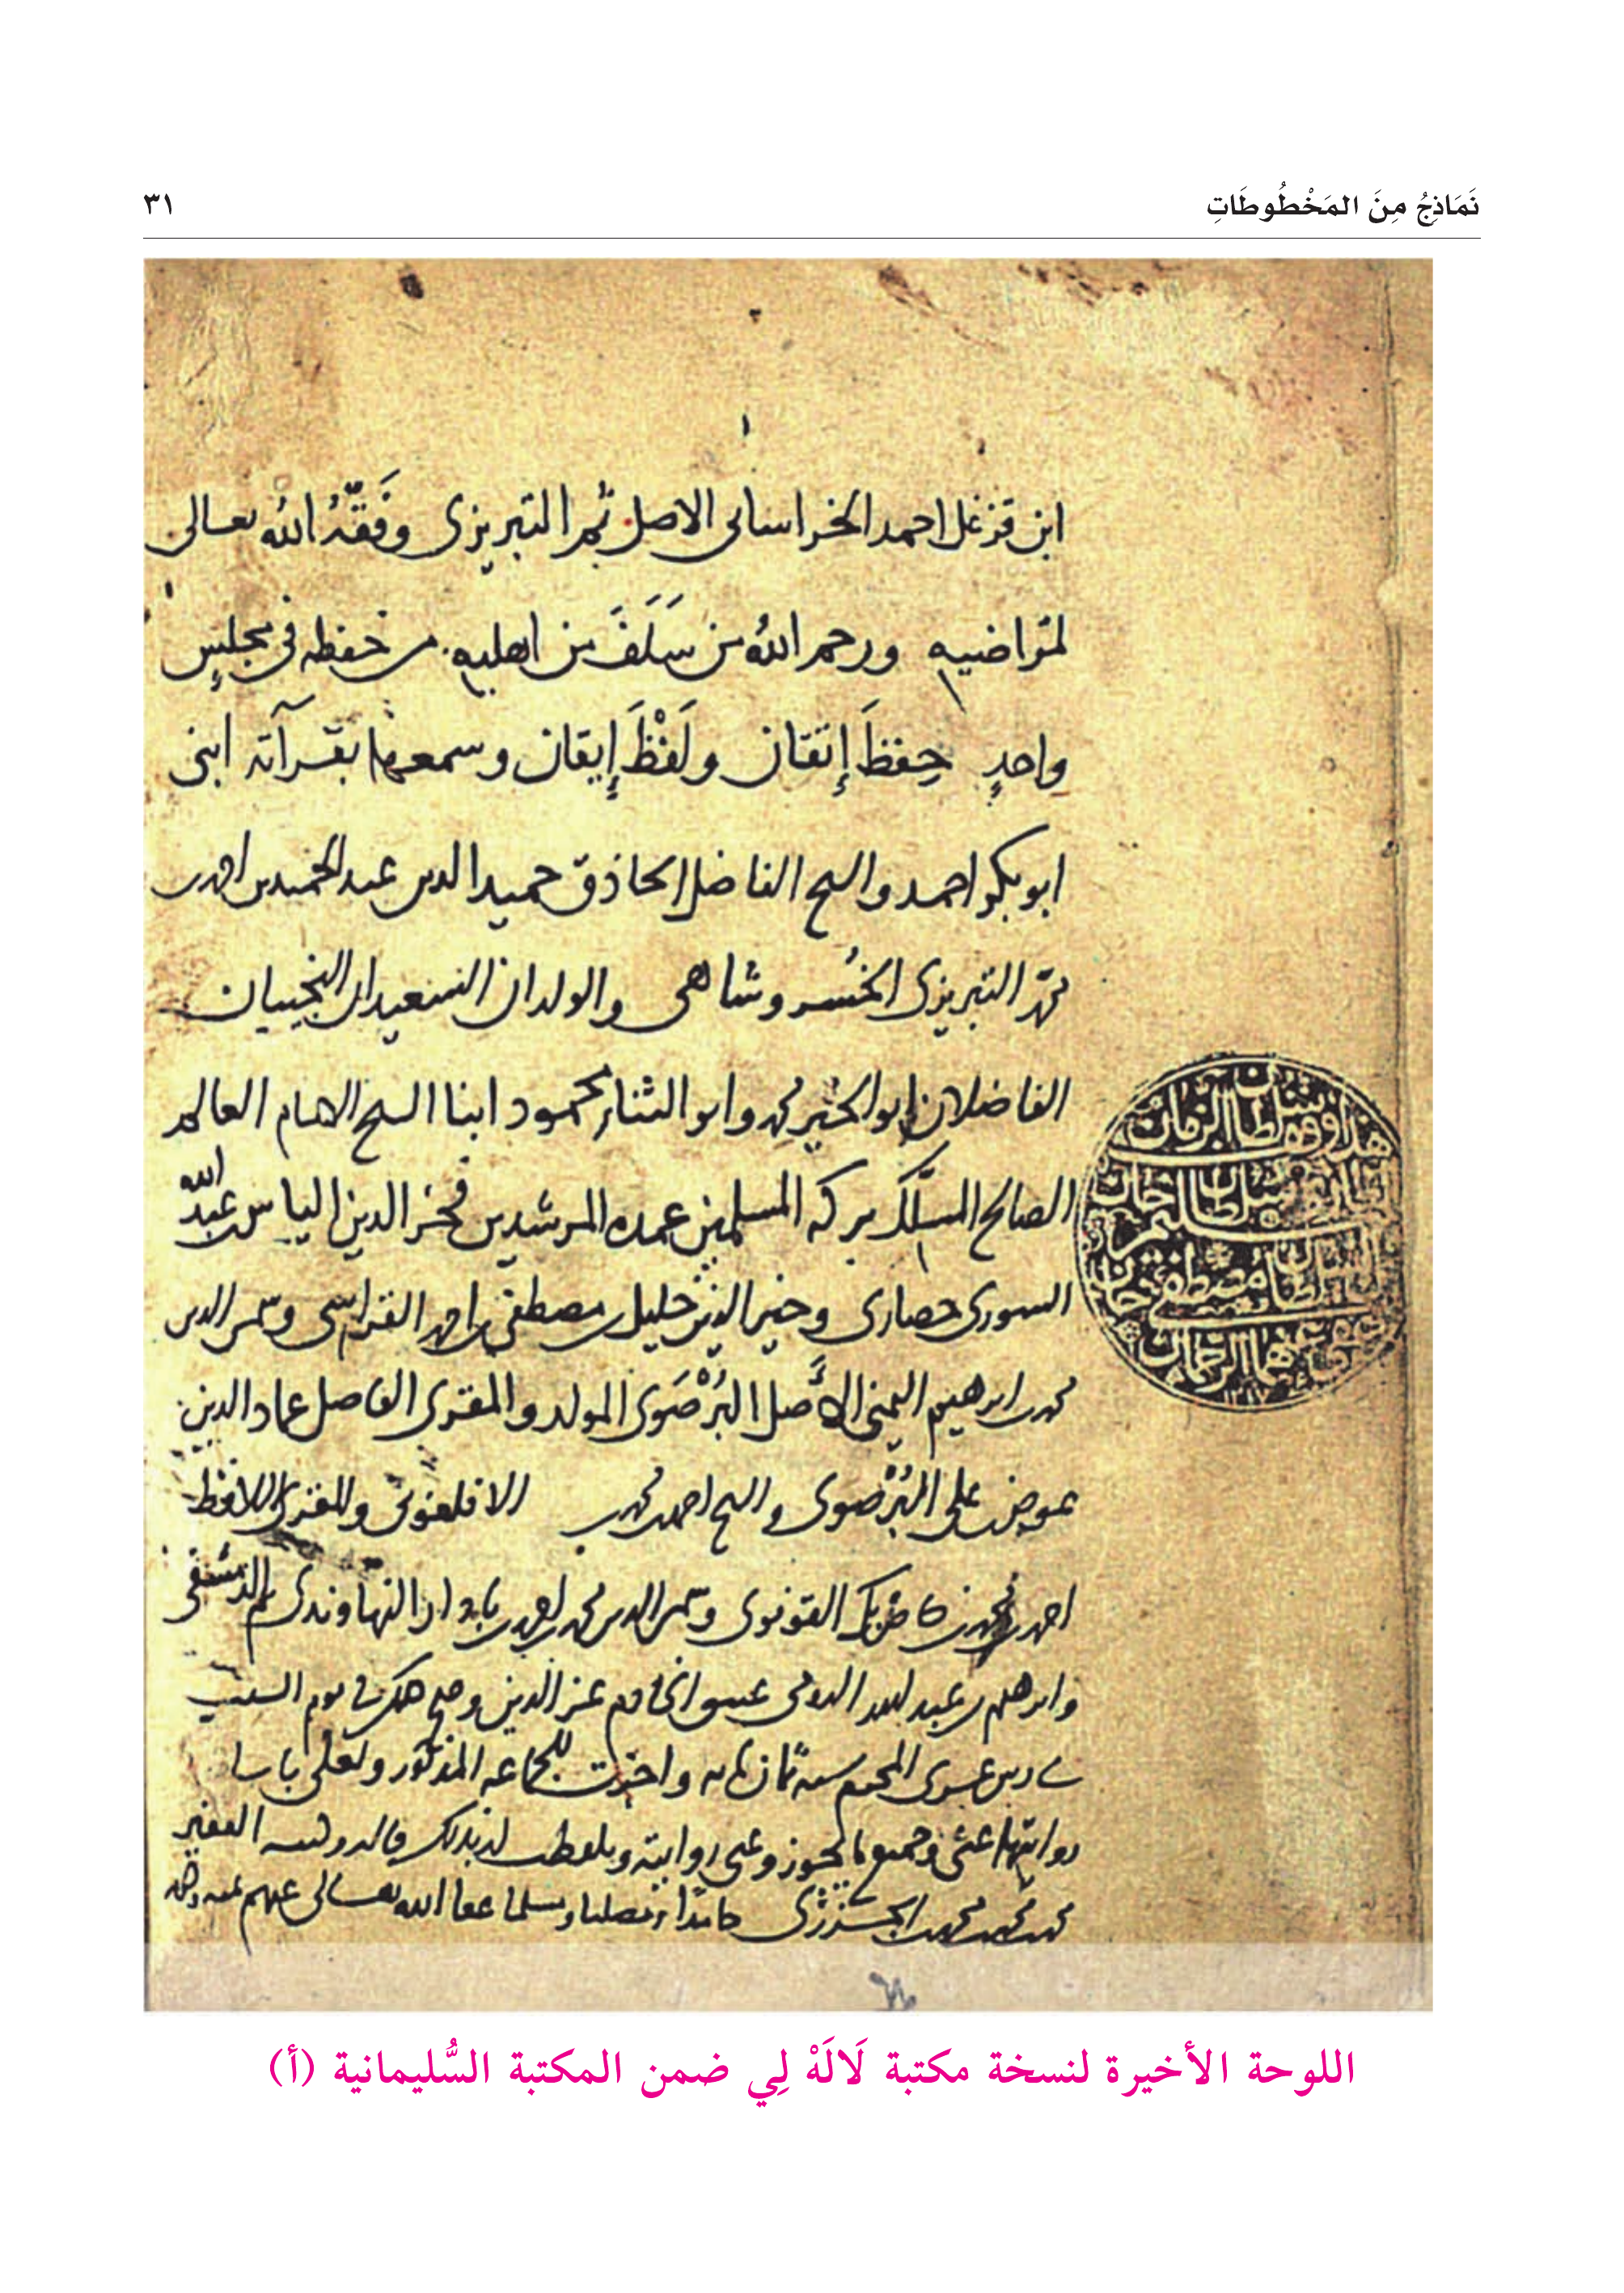 نَمَاذِجُ مِنَ المَخْطُوطَاتِ
٣١
ابن قزغل احمد الخراسانى الاصل ثم التبريزى وفقه الله تعالى
لمراضيه ورحم الله من سَلَفَ من اهليه من حفظه فى مجلسٍ
واحدٍ حِفظَ إتقان ولَفْظَ إيقان وسمعها بقرآته ابنى
ابو بكر احمد والشيخ الفاضل الحاذق حميد الدين عبد الحميد بن احمد بن
محمد التبريزى الخُسروشاهى والولدان السعيدان النجيبان
الفاضلان ابو الخير محمد وابو الثناء محمود ابنا الشيخ الامام العالم
الصالح المسلّك بركه المسلمين عمده المرشدين فخر الدين الياس بن عبد الله
السورى حصارى وخير الدين خليل بن مصطفى بن احمد القراسى وشمس الدين
محمد بن ابرهيم اليمنى الأصل البُرْصَوى المولد والمقرى الفاضل عماد الدين
عوض بن على البُرْصوى والشيخ احمد بن محمد بن الاقلغونى والمقرى اللافظ
احمد بن محمد بن القونوى وشمس الدين محمد بن احمد بن النهاوندى ثم الدمشقى
وابرهيم بن عبد الله عز الدين وصح ذلك فى يوم السبت
المحرم سنة ثمان مايه واجزت للجماعه المذكور
روايتها عنى وجميع ما يجوز عنى روايته وتلفظت لهم بذلك قاله وكتبه الفقير
محمد بن محمد بن محمد الجزرى حامدا ومصليا ومسلما عفا الله تعالى عنهم
اللوحة الأخيرة لنسخة مكتبة لَالَهْ لِي ضمن المكتبة السُّليمانية (أ)